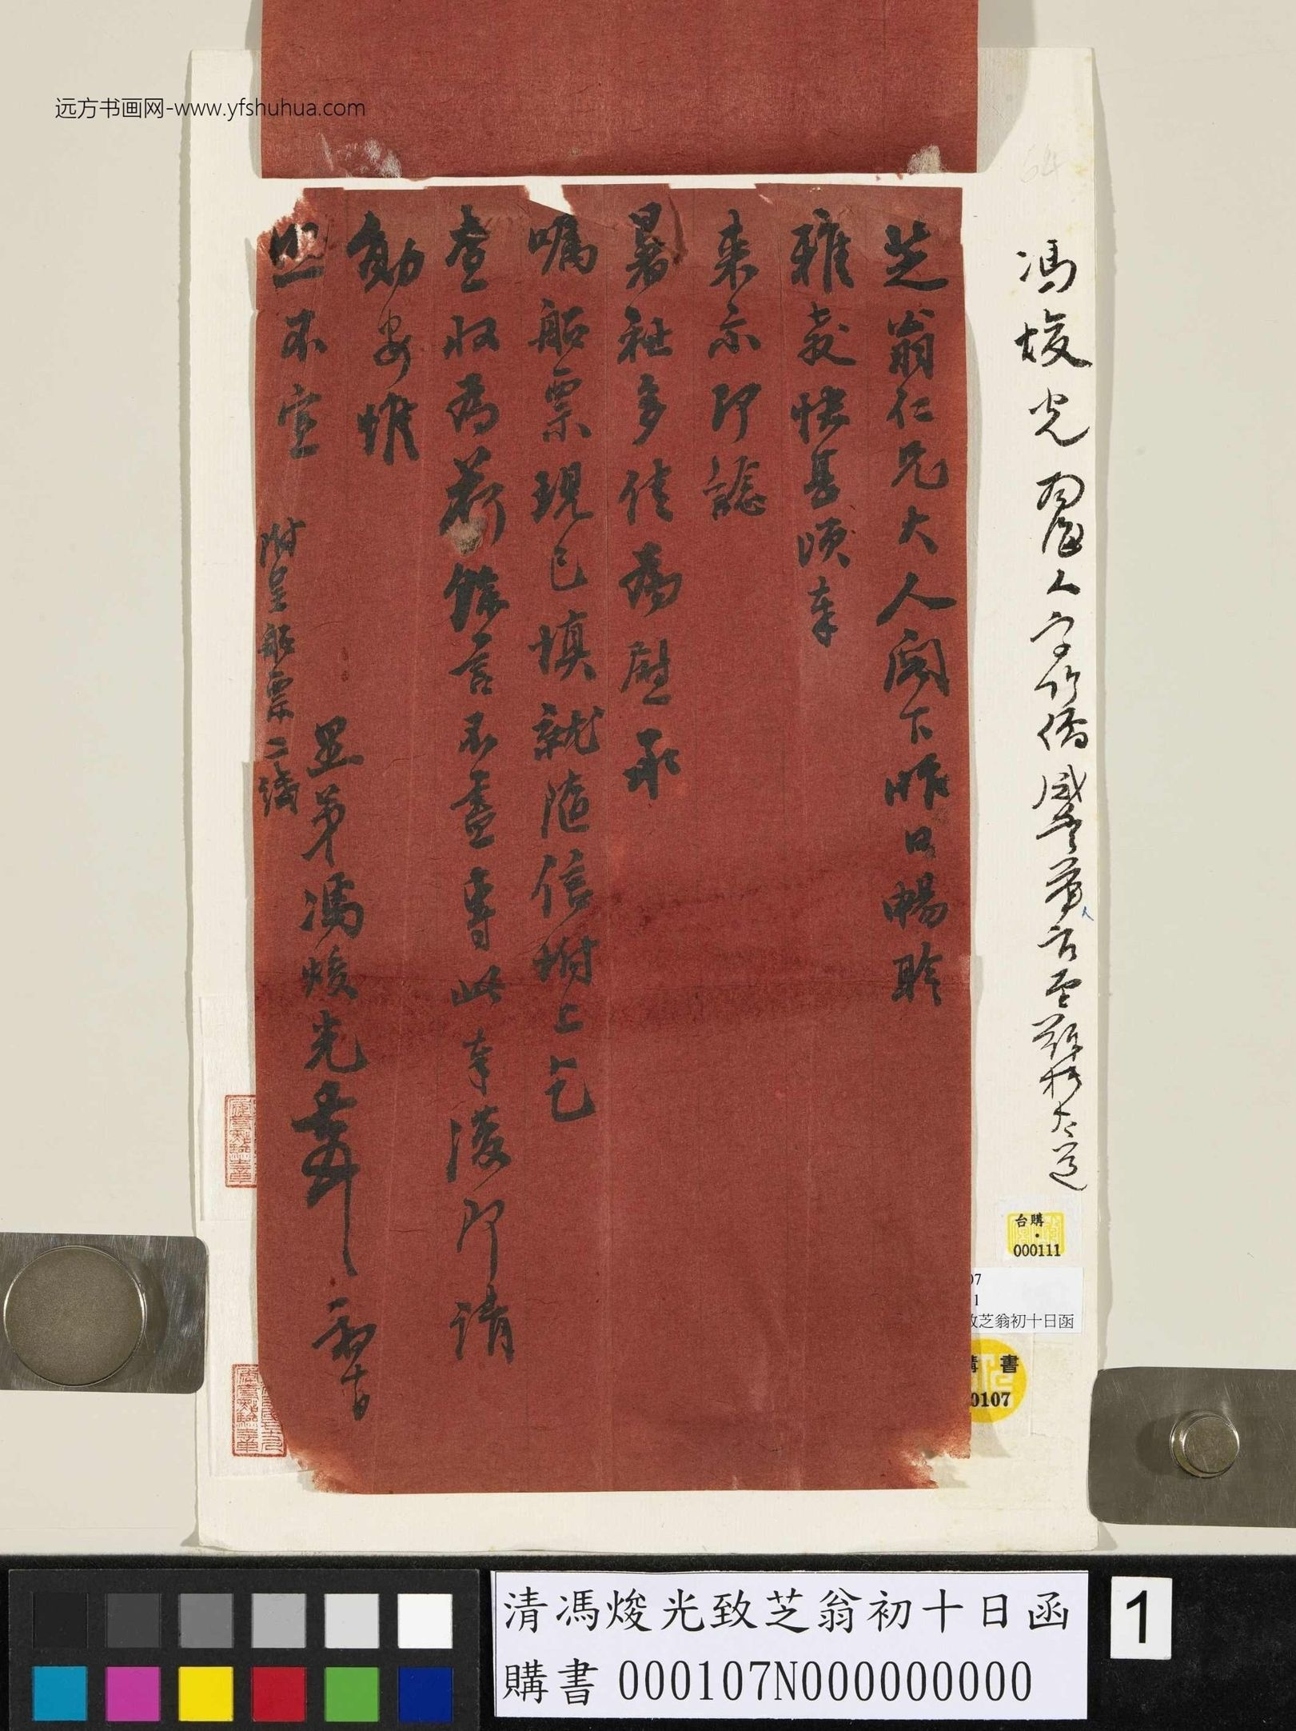 远方书画网-www.yfshuhua.com
64
馮焌光 南海人字竹儒咸豐舉人官至蘇松太道
芝翁仁兄大人閣下昨日暢聆
雅教快甚頃奉
來示即諗
暑祉多佳為慰承
囑船票現已填就隨信附上乞
查收為荷餘言不盡專此奉復即請
勛安惟
照不宣
附呈船票二張
愚弟馮焌光頓首 初十日
台購
000111
07
1
致芝翁初十日函
購書
0107
清馮焌光致芝翁初十日函
購書 000107N000000000
1